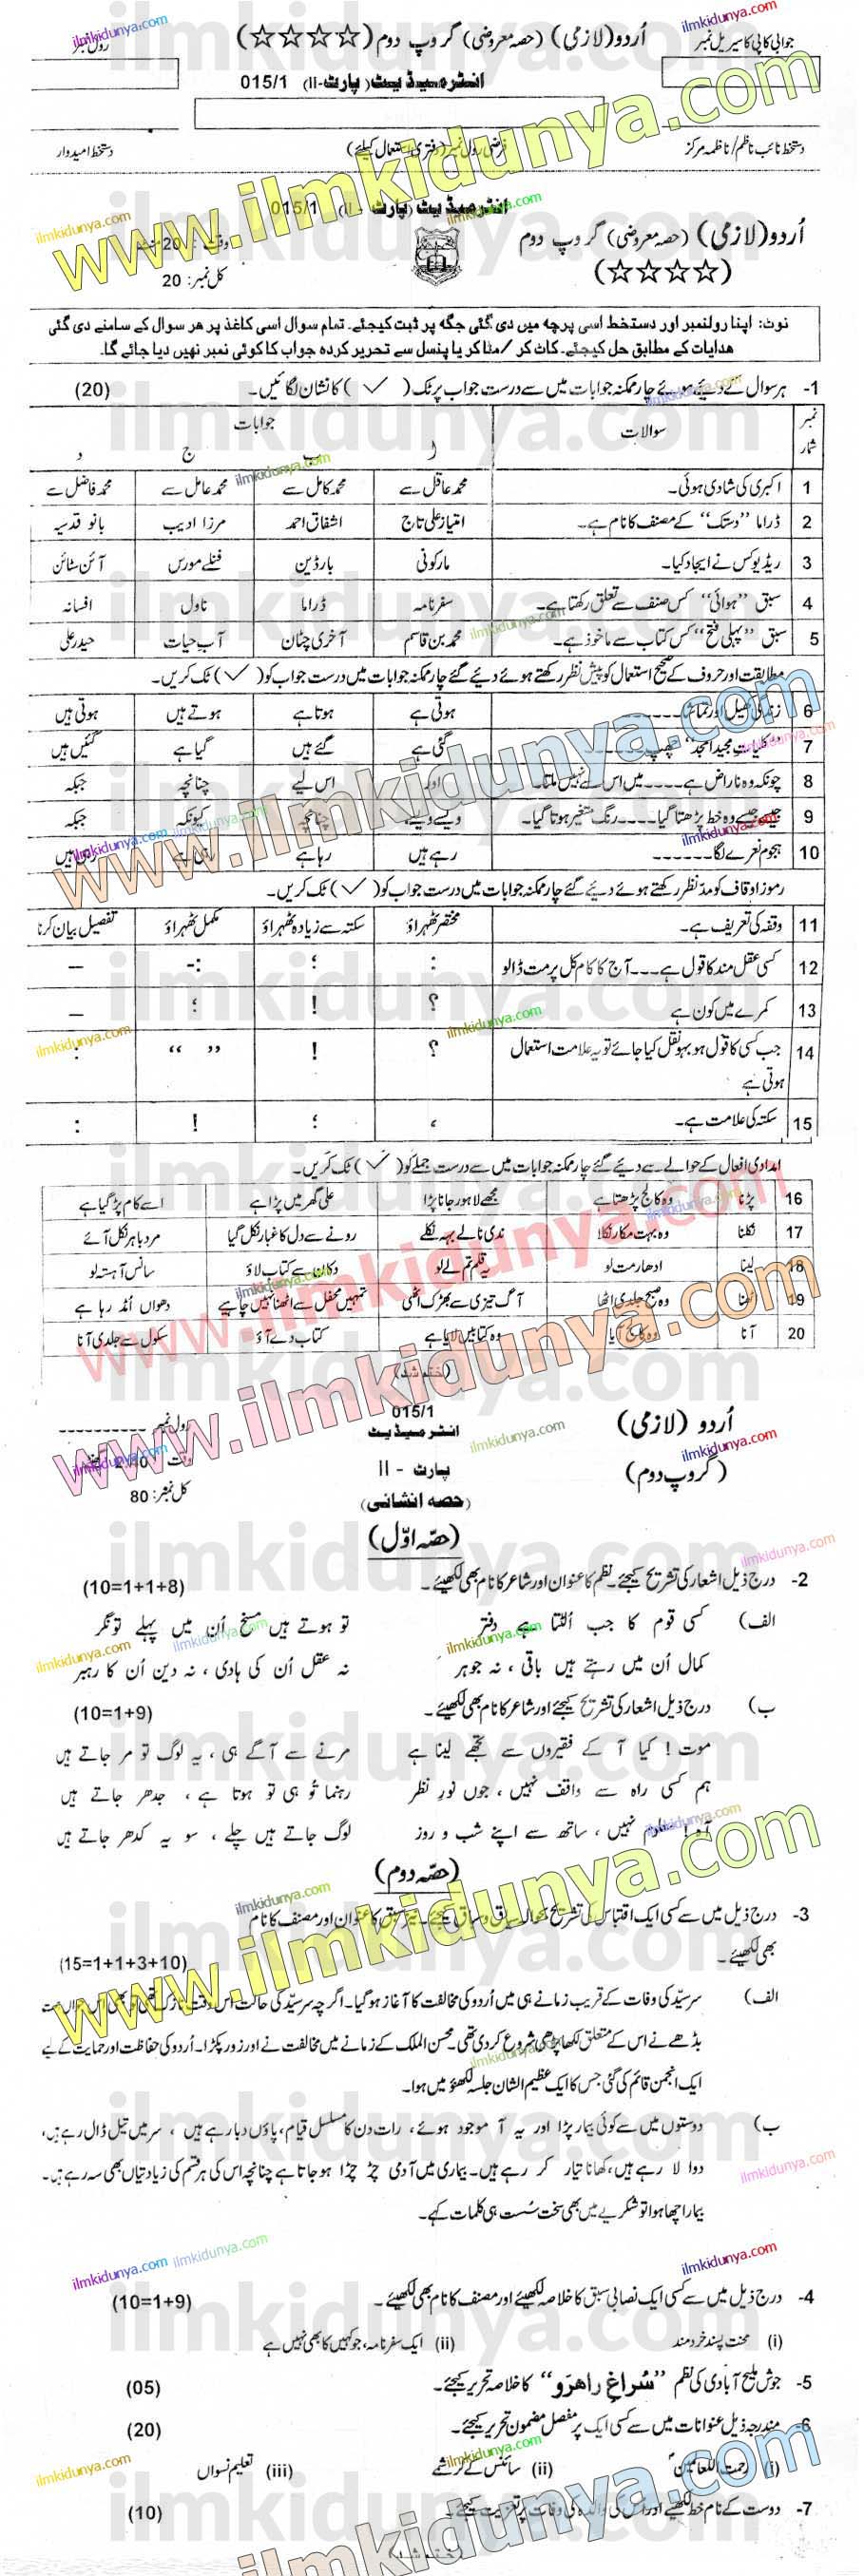 جوابی کاپی کا سیریل نمبر
اُردو (لازمی) (حصہ معروضی) گروپ دوم (☆☆☆☆)
رول نمبر
انٹرمیڈیٹ (پارٹ-II) 015/1
دستخط نائب ناظم / ناظمہ مرکز
فرضی رول نمبر (دفتری استعمال کیلئے)
دستخط امیدوار
انٹرمیڈیٹ (پارٹ - II) 015/1
اُردو (لازمی) (حصہ معروضی) گروپ دوم
(☆☆☆☆)
وقت : 20 منٹ
کل نمبر: 20
نوٹ: اپنا رولنمبر اور دستخط اسی پرچہ میں دی گئی جگہ پر ثبت کیجئے۔ تمام سوال اسی کاغذ پر ہر سوال کے سامنے دی گئی
ہدایات کے مطابق حل کیجئے۔ کاٹ کر / مٹا کر یا پنسل سے تحریر کردہ جواب کا کوئی نمبر نہیں دیا جائے گا۔
1- ہر سوال کے دیئے ہوئے چار ممکنہ جوابات میں سے درست جواب پر ٹک (✓) کا نشان لگائیں۔ (20)
نمبر شمار سوالات جوابات
ا ب ج د
1 اکبری کی شادی ہوئی۔ محمد عاقل سے محمد کامل سے محمد عامل سے محمد فاضل سے
2 ڈراما ”دستک“ کے مصنف کا نام ہے۔ امتیاز علی تاج اشفاق احمد مرزا ادیب بانو قدسیہ
3 ریڈیو کس نے ایجاد کیا۔ مارکونی بارڈین فنلے مورس آئن سٹائن
4 سبق ”ہوائی“ کس صنف سے تعلق رکھتا ہے۔ سفرنامہ ڈراما ناول افسانہ
5 سبق ”پہلی فتح“ کس کتاب سے ماخوذ ہے۔ محمد بن قاسم آخری چٹان آب حیات حیدر علی
مطابقت اور حروف کے صحیح استعمال کو پیش نظر رکھتے ہوئے دیئے گئے چار ممکنہ جوابات میں درست جواب کو (✓) ٹک کریں۔
6 زندگی کھیل اور تماشا ۔۔۔۔۔۔ ہوتی ہے ہوتا ہے ہوتے ہیں ہوتی ہیں
7 ”کلیات مجید امجد“ چھپ ۔۔۔۔ گئی ہے گئے ہیں گیا ہے گئیں ہیں
8 چونکہ وہ ناراض ہے۔۔۔۔ میں اس سے نہیں ملتا۔ اور اس لیے چنانچہ جبکہ
9 جیسے جیسے وہ خط پڑھتا گیا۔۔۔۔ رنگ متغیر ہوتا گیا۔ ویسے ویسے چنانچہ کیونکہ جبکہ
10 ہجوم نعرے لگا۔۔۔۔۔۔ رہے ہیں رہا ہے رہی ہے رہی ہیں
رموز اوقاف کو مدنظر رکھتے ہوئے دیئے گئے چار ممکنہ جوابات میں درست جواب کو (✓) ٹک کریں۔
11 وقفہ کی تعریف ہے۔ مختصر ٹھہراؤ سکتہ سے زیادہ ٹھہراؤ مکمل ٹھہراؤ تفصیل بیان کرنا
12 کسی عقل مند کا قول ہے۔۔۔ آج کا کام کل پر مت ڈالو : ؛ :- –
13 کمرے میں کون ہے ؟ ! ؛ –
14 جب کسی کا قول ہو بہو نقل کیا جائے تو یہ علامت استعمال ؟ ! ” “ :
ہوتی ہے
15 سکتہ کی علامت ہے۔ ، ؛ ! :
امدادی افعال کے حوالے سے دیئے گئے چار ممکنہ جوابات میں سے درست جملے کو (✓) ٹک کریں۔
16 پڑنا وہ کالج پڑھتا ہے مجھے لاہور جانا پڑا علی گھر میں پڑا ہے اسے کام پڑ گیا ہے
17 نکلنا وہ بہت مکار نکلا ندی نالے بہہ نکلے رونے سے دل کا غبار نکل گیا مرد باہر نکل آئے
18 لینا ادھار مت لو یہ قلم تم لے لو دکان سے کتاب لاؤ سانس آہستہ لو
19 اٹھنا وہ صبح جلدی اٹھا آگ تیزی سے بھڑک اٹھی تمہیں محفل سے اٹھنا نہیں چاہیے دھواں اُمڈ رہا ہے
20 آنا وہ کالج آیا وہ کتابیں لایا ہے کتاب دے آؤ سکول سے جلدی آنا
(ختم شد)
015/1
اُردو (لازمی)
انٹرمیڈیٹ
رول نمبر ----------
(گروپ دوم)
پارٹ - II
وقت
کل نمبر: 80
(حصہ انشائی)
(حصّہ اوّل)
2- درج ذیل اشعار کی تشریح کیجئے۔ نظم کا عنوان اور شاعر کا نام بھی لکھیئے۔ (10=1+1+8)
الف) کسی قوم کا جب اُلٹتا ہے دفتر تو ہوتے ہیں مسخ اُن میں پہلے تونگر
کمال اُن میں رہتے ہیں باقی ، نہ جوہر نہ عقل اُن کی ہادی ، نہ دین اُن کا رہبر
ب) درج ذیل اشعار کی تشریح کیجئے اور شاعر کا نام بھی لکھیئے۔ (10=1+9)
موت ! کیا آ کے فقیروں سے تجھے لینا ہے مرنے سے آگے ہی ، یہ لوگ تو مر جاتے ہیں
ہم کسی راہ سے واقف نہیں ، جوں نورِ نظر رہنما تُو ہی تو ہوتا ہے ، جدھر جاتے ہیں
آہ ! معلوم نہیں ، ساتھ سے اپنے شب و روز لوگ جاتے ہیں چلے ، سو یہ کدھر جاتے ہیں
(حصّہ دوم)
3- درج ذیل میں سے کسی ایک اقتباس کی تشریح بحوالہ سیاق و سباق کیجئے۔ نیز سبق کا عنوان اور مصنف کا نام
بھی لکھیئے۔ (15=1+1+3+10)
الف) سرسیّد کی وفات کے قریب زمانے ہی میں اُردو کی مخالفت کا آغاز ہو گیا۔ اگرچہ سرسیّد کی حالت اس وقت نازک تھی تو بھی اس جواں ہمت
بڈھے نے اس کے متعلق لکھا پڑھی شروع کر دی تھی۔ محسن الملک کے زمانے میں مخالفت نے اور زور پکڑا۔ اُردو کی حفاظت اور حمایت کے لیے
ایک انجمن قائم کی گئی جس کا ایک عظیم الشان جلسہ لکھنؤ میں ہوا۔
ب) دوستوں میں سے کوئی بیمار پڑا اور یہ آ موجود ہوئے، رات دن کا مسلسل قیام، پاؤں دبا رہے ہیں ، سر میں تیل ڈال رہے ہیں،
دوا لا رہے ہیں، کھانا تیار کر رہے ہیں۔ بیماری میں آدمی چڑ چڑا ہو جاتا ہے چنانچہ اس کی ہر قسم کی زیادتیاں بھی سہ رہے ہیں۔
بیمار اچھا ہوا تو شکریے میں بھی سخت سُست ہی کلمات کہے۔
4- درج ذیل میں سے کسی ایک نصابی سبق کا خلاصہ لکھیئے اور مصنف کا نام بھی لکھیئے۔ (10=1+9)
(i) محنت پسند خرد مند (ii) ایک سفرنامہ، جو کہیں کا بھی نہیں ہے
5- جوش ملیح آبادی کی نظم ”سُراغِ راہرَو“ کا خلاصہ تحریر کیجئے۔ (05)
6- مندرجہ ذیل عنوانات میں سے کسی ایک پر مفصل مضمون تحریر کیجئے۔ (20)
(i) رحمت اللعالمینؐ (ii) سائنس کے کرشمے (iii) تعلیم نسواں
7- دوست کے نام خط لکھیئے اور اس کی والدہ کی وفات پر تعزیت کیجئے۔ (10)
(ختم شد)
www.ilmkidunya.com
ilmkidunya.com